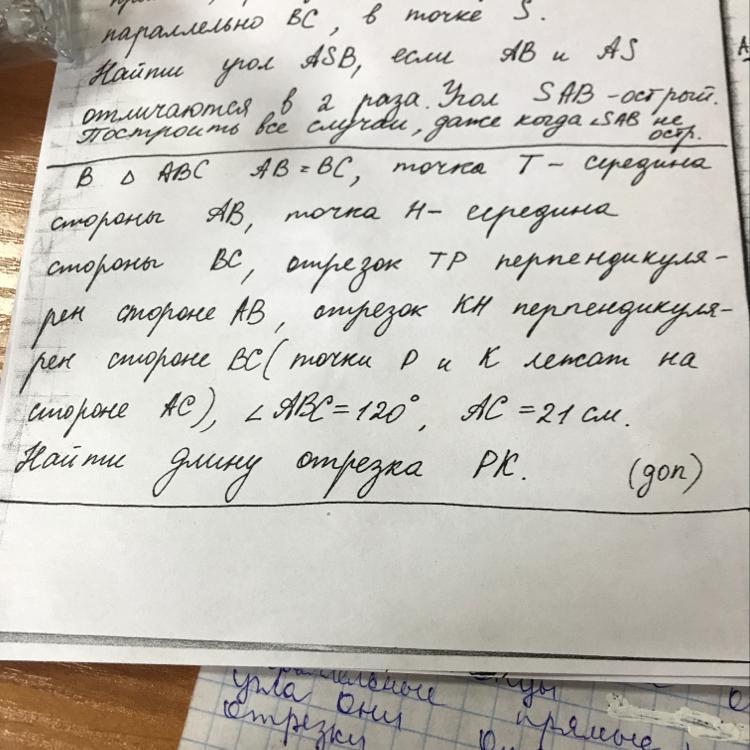 параллельно BC, в точке S.
Найти угол ASB, если AB и AS
отличаются в 2 раза. Угол SAB - острый.
Построить все случаи, даже когда ∠SAB не
остр.
В △ ABC AB = BC, точка T - середина
стороны AB, точка H - середина
стороны BC, отрезок TP перпендикуля-
рен стороне AB, отрезок KH перпендикуля-
рен стороне BC (точки P и K лежат на
стороне AC), ∠ABC = 120°, AC = 21 см.
Найти длину отрезка PK. (доп)
угла Они прямые
отрезку